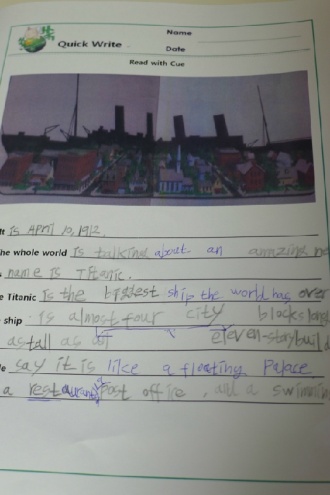 Quick Write
Name
Date
Read with Cue
It is APril 10, 1912.
he whole world is talking about an amazing ne
name is Titanic.
e Titanic Is the biggest ship the world has over
ship is almost four city blocks long
as tall as an eleven-story build
say it is like a floating Palace
a restaurant Post office, and a swimmin